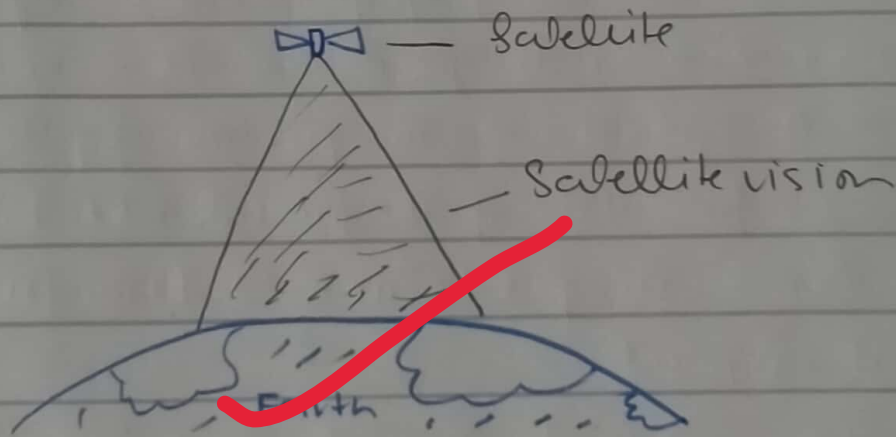 Satellite
Satellite vision
Earth